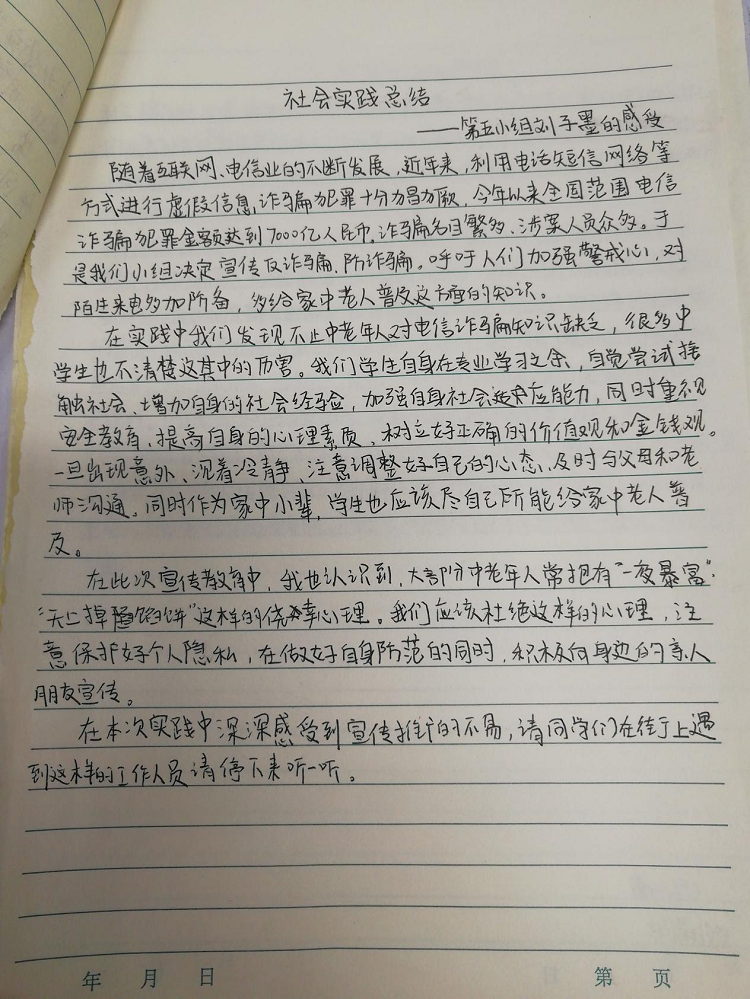 社会实践总结
——第五小组刘子墨的感受
随着互联网、电信业的不断发展，近年来，利用电话短信网络等
方式进行虚假信息诈骗犯罪十分猖厥，今年以来全国范围电信
诈骗犯罪金额达到7000亿人民币，诈骗名目繁多、涉案人员众多。于
是我们小组决定宣传反诈骗、防诈骗。呼吁人们加强警戒心，对
陌生来电多加防备，多给家中老人普及这方面的知识。
在实践中我们发现不止中老年人对电信诈骗知识缺乏，很多中
学生也不清楚这其中的厉害。我们学生自身在专业学习之余，自觉尝试接
触社会、增加自身的社会经验，加强自身社会适应能力，同时重视
安全教育、提高自身的心理素质、树立好正确的价值观和金钱观。
一旦出现意外、沉着冷静、注意调整好自己的心态，及时与父母和老
师沟通。同时作为家中小辈，学生也应该尽自己所能给家中老人普
及。
在此次宣传教育中，我也认识到，大部分中老年人常抱有“一夜暴富”
“天上掉馅饼”这样的侥幸心理。我们应该杜绝这样的心理，注
意保护好个人隐私，在做好自身防范的同时，积极向身边的亲人
朋友宣传。
在本次实践中深深感受到宣传推广的不易，请同学们在街上遇
到这样的工作人员请停下来听一听。
年 月 日 第 页